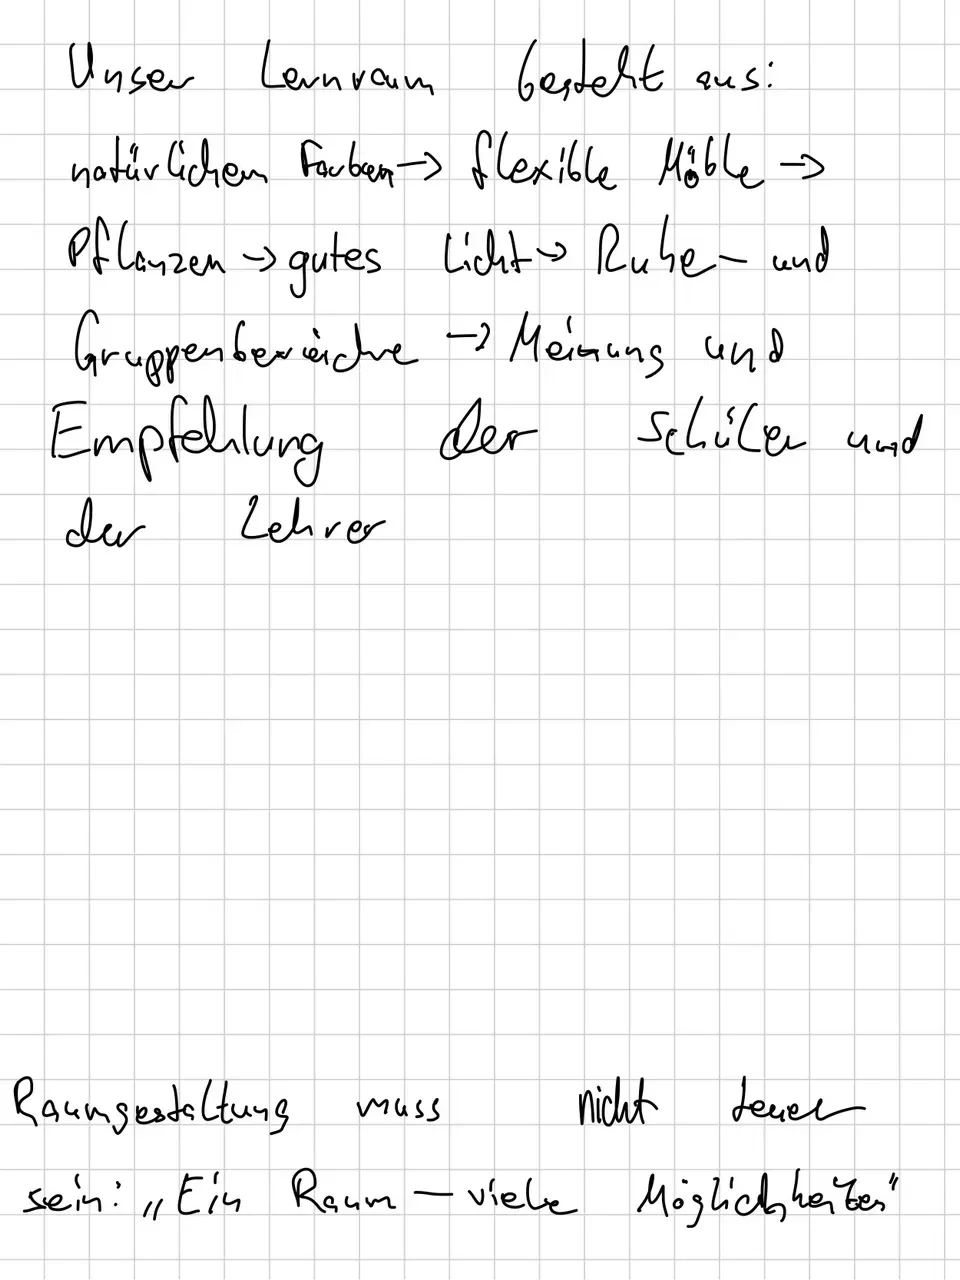 Unser Lernraum besteht aus:
natürlichen Farben → flexible Möble →
Pflanzen → gutes Licht → Ruhe- und
Gruppenbereiche → Meinung und
Empfehlung der Schüler und
der Lehrer
Raumgestaltung muss nicht teuer
sein: „Ein Raum – viele Möglichkeiten"